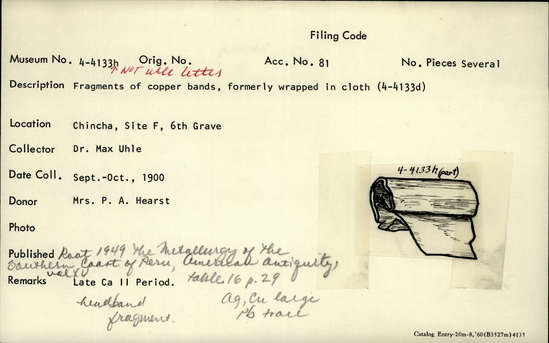 Filing Code
Museum No. 4-4133h Orig. No. Acc. No. 81 No. Pieces Several
↑ NOT use letter
Description Fragments of copper bands, formerly wrapped in cloth (4-4133d)
Location Chincha, Site F, 6th Grave
Collector Dr. Max Uhle
4-4133h (part)
Date Coll. Sept.-Oct., 1900
Donor Mrs. P. A. Hearst
Photo
Published Root 1949 The Metallurgy of the
Southern Coast of Peru, American Antiquity,
vol XV table 16 p. 29
Remarks Late Ca II Period.
headband
fragment.
Ag, Cu large
Pb trace
Catalog Entry-20m-8,'60(B3927m)4135